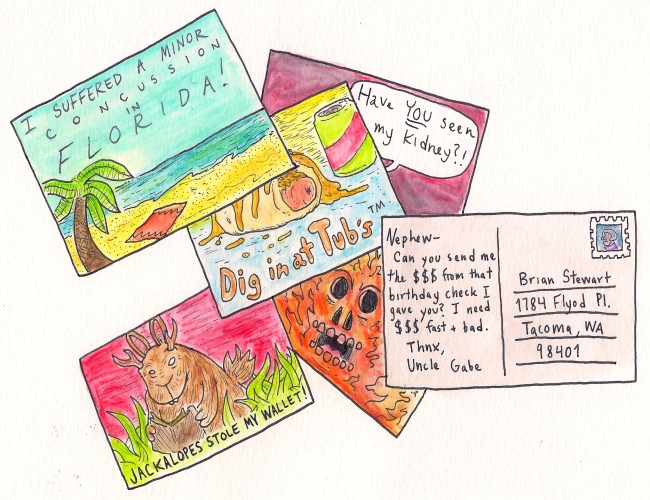 I SUFFERED A MINOR
CONCUSSION
IN
FLORIDA!
Have YOU seen
my Kidney?!
Dig in at Tub's™
Nephew-
Can you send me
the $$$ from that
birthday check I
gave you? I need
$$$ fast + bad.
Thnx,
Uncle Gabe
Brian Stewart
1784 Flyod Pl.
Tacoma, WA
98401
JACKALOPES STOLE MY WALLET!